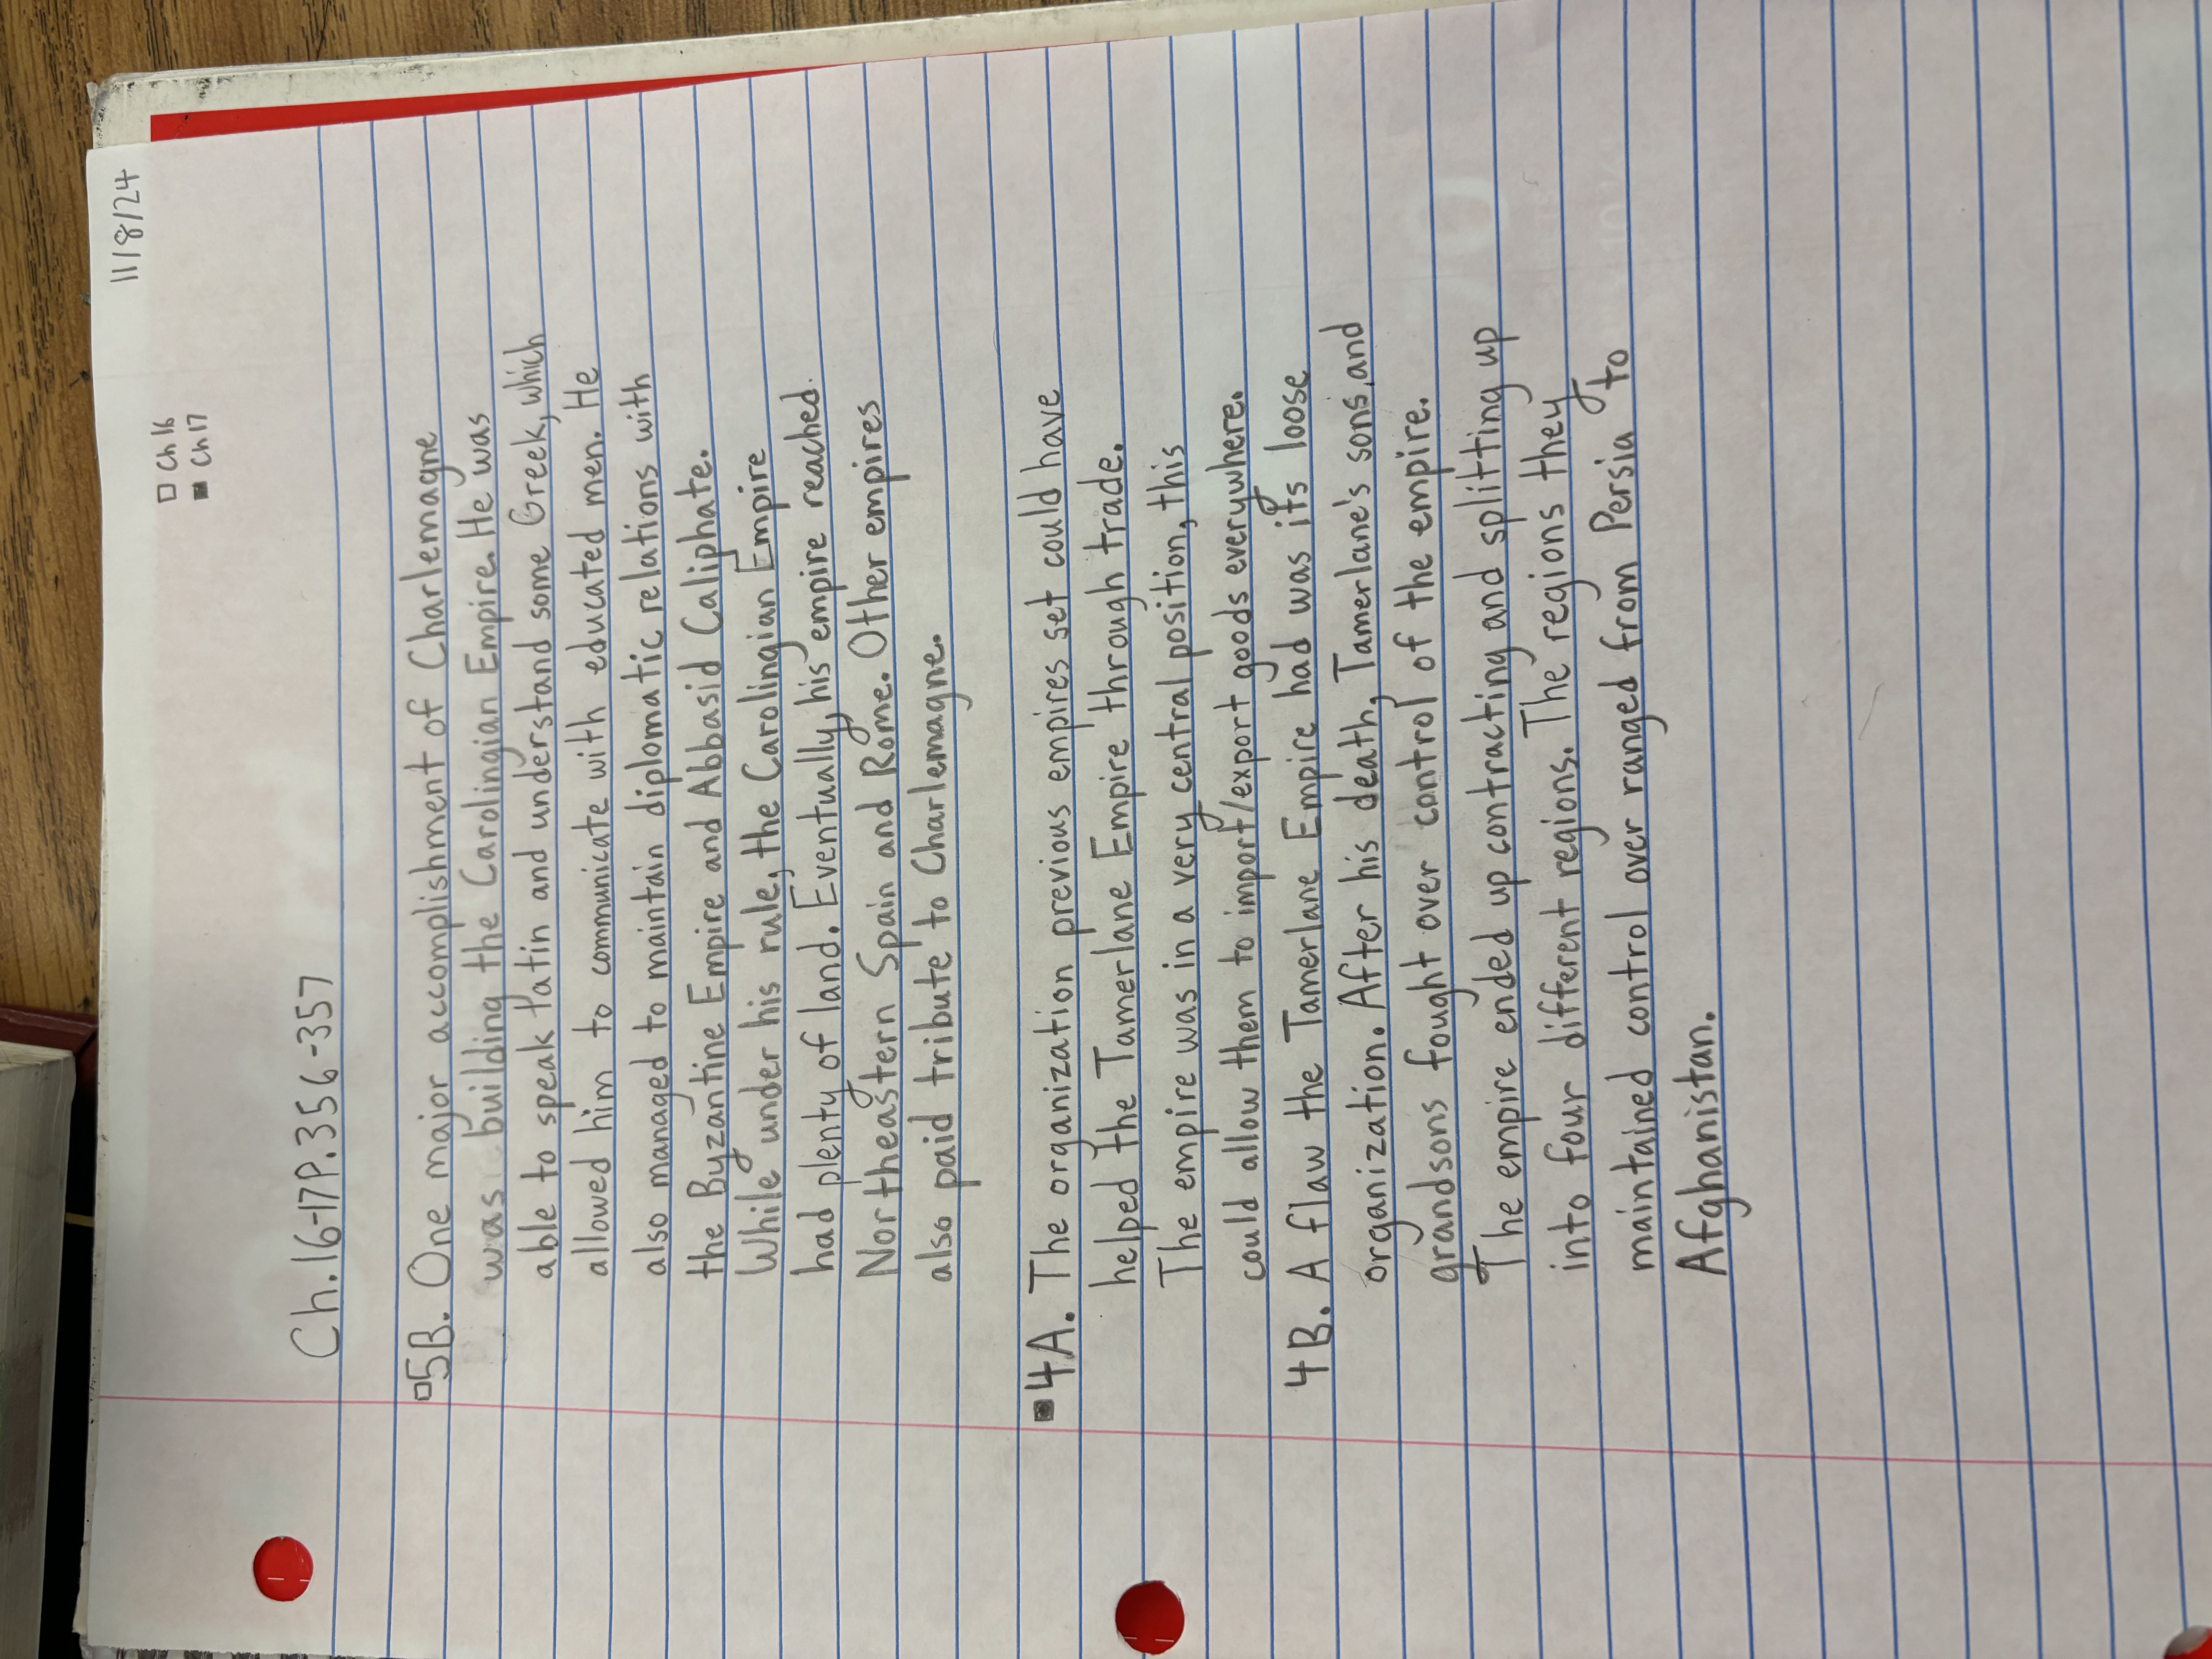 11/8/24
□ Ch 16
■ Ch 17
Ch. 16-17 P. 356-357
□5B. One major accomplishment of Charlemagne
was building the Carolingian Empire. He was
able to speak Latin and understand some Greek, which
allowed him to communicate with educated men. He
also managed to maintain diplomatic relations with
the Byzantine Empire and Abbasid Caliphate.
While under his rule, the Carolingian Empire
had plenty of land. Eventually, his empire reached
Northeastern Spain and Rome. Other empires
also paid tribute to Charlemagne.
■4A. The organization previous empires set could have
helped the Tamerlane Empire through trade.
The empire was in a very central position, this
could allow them to import/export goods everywhere.
4B. A flaw the Tamerlane Empire had was its loose
organization. After his death, Tamerlane's sons, and
grandsons fought over control of the empire.
The empire ended up contracting and splitting up
into four different regions. The regions they
maintained control over ranged from Persia to
Afghanistan.